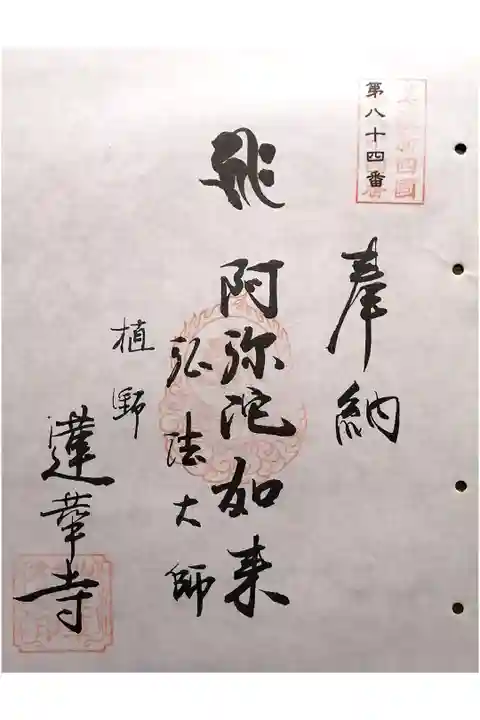 第八十四番
奉納
阿弥陀如来
弘法大師
植野
蓮華寺